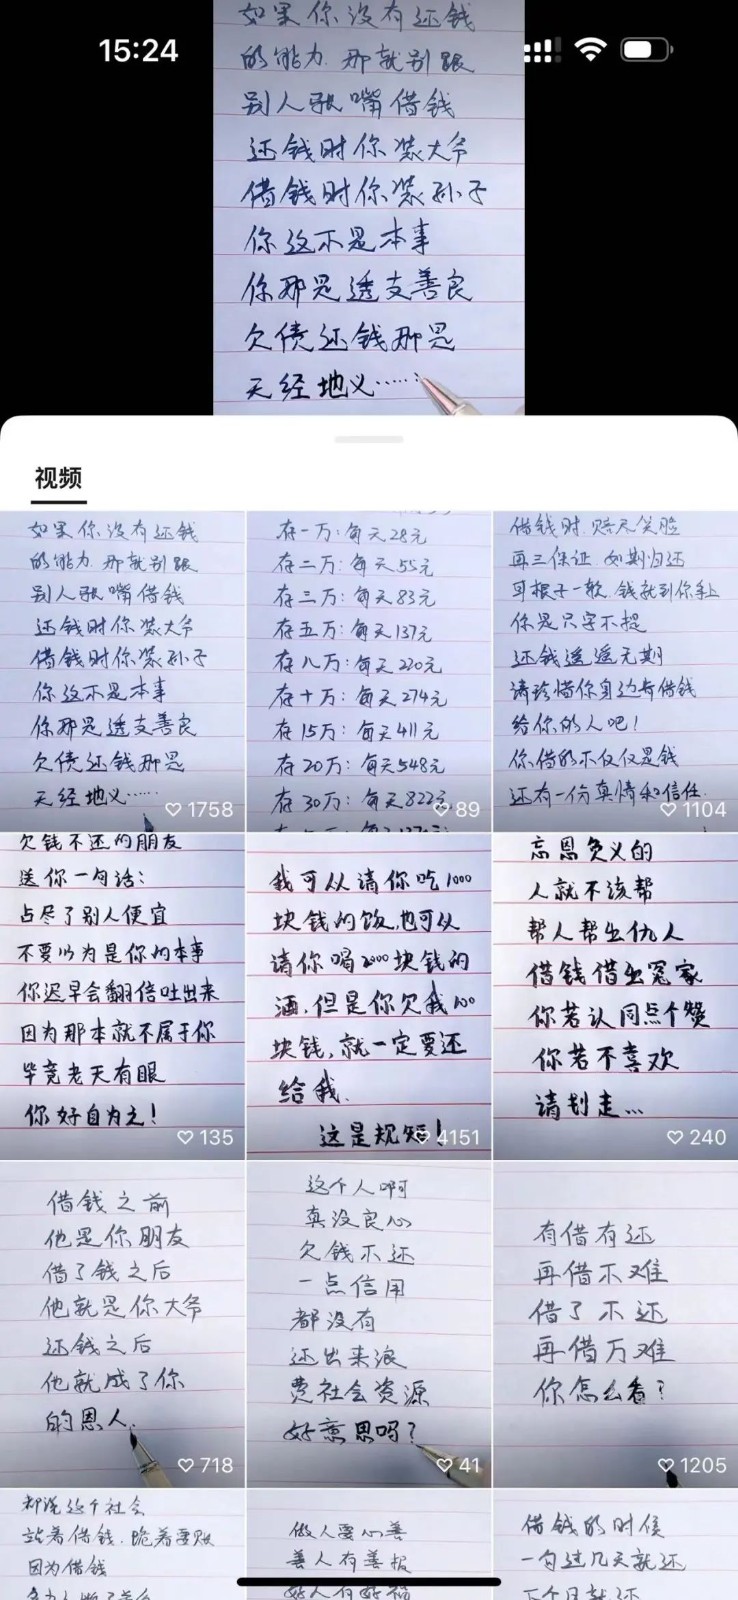 15:24
如果你没有还钱
的能力.那就别跟
别人张嘴借钱
还钱时你装大爷
借钱时你装孙子
你这不是本事
你那是透支善良
欠债还钱那是
天经地义……
视频
如果你没有还钱
的能力.那就别跟
别人张嘴借钱
还钱时你装大爷
借钱时你装孙子
你这不是本事
你那是透支善良
欠债还钱那是
天经地义……
1758
存一万:每天28元
存二万:每天55元
存三万:每天83元
存五万:每天137元
存八万:每天220元
存十万:每天274元
存15万:每天411元
存20万:每天548元
存30万:每天822元
89
借钱时.赔尽笑脸
再三保证.如期归还
耳根子一软.钱就到你手上
你是只字不提
还钱遥遥无期
请珍惜你身边每借钱
给你的人吧!
你借的不仅仅是钱
还有一份真情和信任.
1104
欠钱不还的朋友
送你一句话:
占尽了别人便宜
不要以为是你的本事
你迟早会翻倍吐出来
因为那本就不属于你
毕竟老天有眼
你好自为之!
135
我可以请你吃1000
块钱的饭,也可以
请你喝2000块钱的
酒,但是你欠我100
块钱,就一定要还
给我.
这是规矩!
4151
忘恩负义的
人就不该帮
帮人帮出仇人
借钱借出冤家
你若认同点个赞
你若不喜欢
请划走…
240
借钱之前
他是你朋友
借了钱之后
他就是你大爷
还钱之后
他就成了你
的恩人.
718
这个人啊
真没良心
欠钱不还
一点信用
都没有
还出来浪
费社会资源
好意思吗?
41
有借有还
再借不难
借了不还
再借万难
你怎么看?
1205
却说这个社会
站着借钱.跪着要账
因为借钱
做人要心善
善人有善报
好人有好福
借钱的时候
一句过几天就还
下个月就还